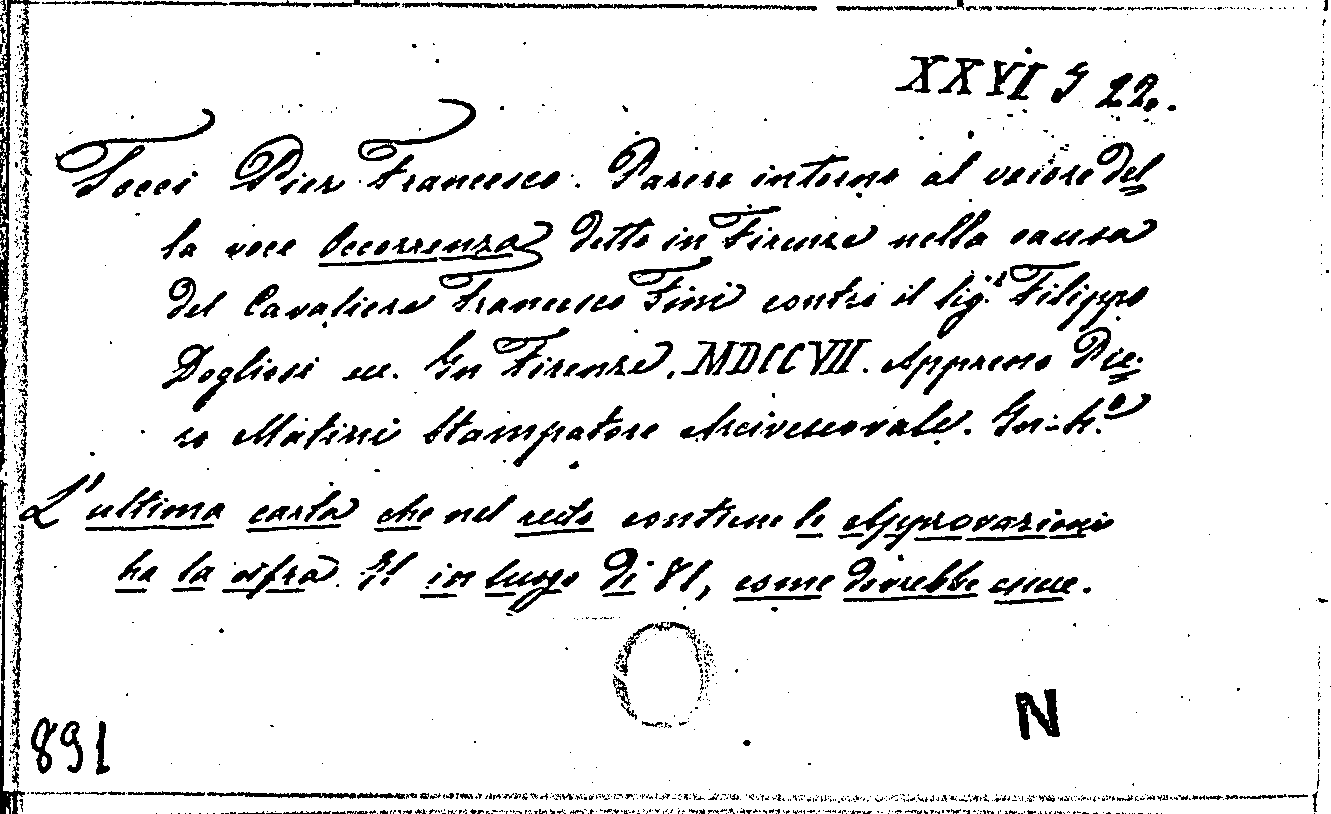 XXVI G 22.
Tocci Pier Francesco. Parere intorno al valore del=
la voce Occorrenza dette in Firenze nella causa
del Cavaliere Francesco Fini contro il Sig.r Filippo
Dogliosi ec. In Firenze, MDCCVII. Appresso Pie=
ro Matini Stampatore Arcivescovale. In-4.o
L'ultima carta che nel recto contiene le Approvazioni
ha la cifra 71 in luogo di 81, come dovrebbe essere.
N
891